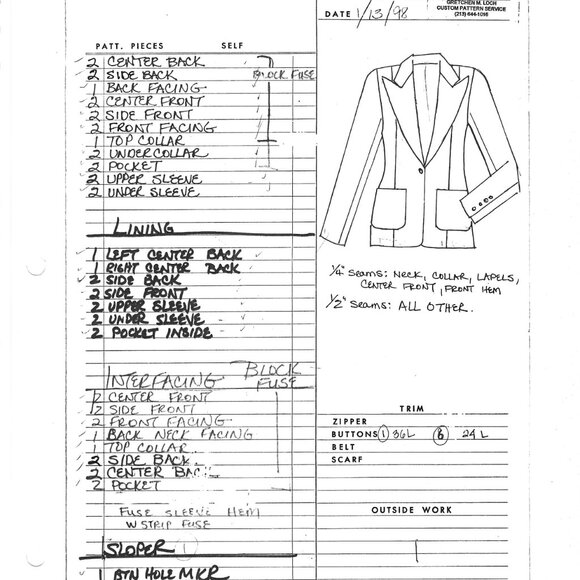 GRETCHEN M. LOCH
CUSTOM PATTERN SERVICE
(213) 644-1098
DATE 1/13/98
PATT. PIECES SELF
2 CENTER BACK
2 SIDE BACK BLOCK FUSE
1 BACK FACING
2 CENTER FRONT
2 SIDE FRONT
2 FRONT FACING
1 TOP COLLAR
2 UNDERCOLLAR
2 POCKET
2 UPPER SLEEVE
2 UNDER SLEEVE
LINING
1 LEFT CENTER BACK
1 RIGHT CENTER BACK
2 SIDE BACK
2 SIDE FRONT
2 UPPER SLEEVE
2 UNDER SLEEVE
2 POCKET INSIDE
INTERFACING BLOCK FUSE
2 CENTER FRONT
2 SIDE FRONT
2 FRONT FACING
1 BACK NECK FACING
1 TOP COLLAR
2 SIDE BACK
2 CENTER BACK
2 POCKET
FUSE SLEEVE HEM
W STRIP FUSE
SLOPER 1
1 BTN HOLE MKR
1/4" SEAMS: NECK, COLLAR, LAPELS,
CENTER FRONT, FRONT HEM
1/2" SEAMS: ALL OTHER.
TRIM
ZIPPER
BUTTONS 1 36L 6 24L
BELT
SCARF
OUTSIDE WORK